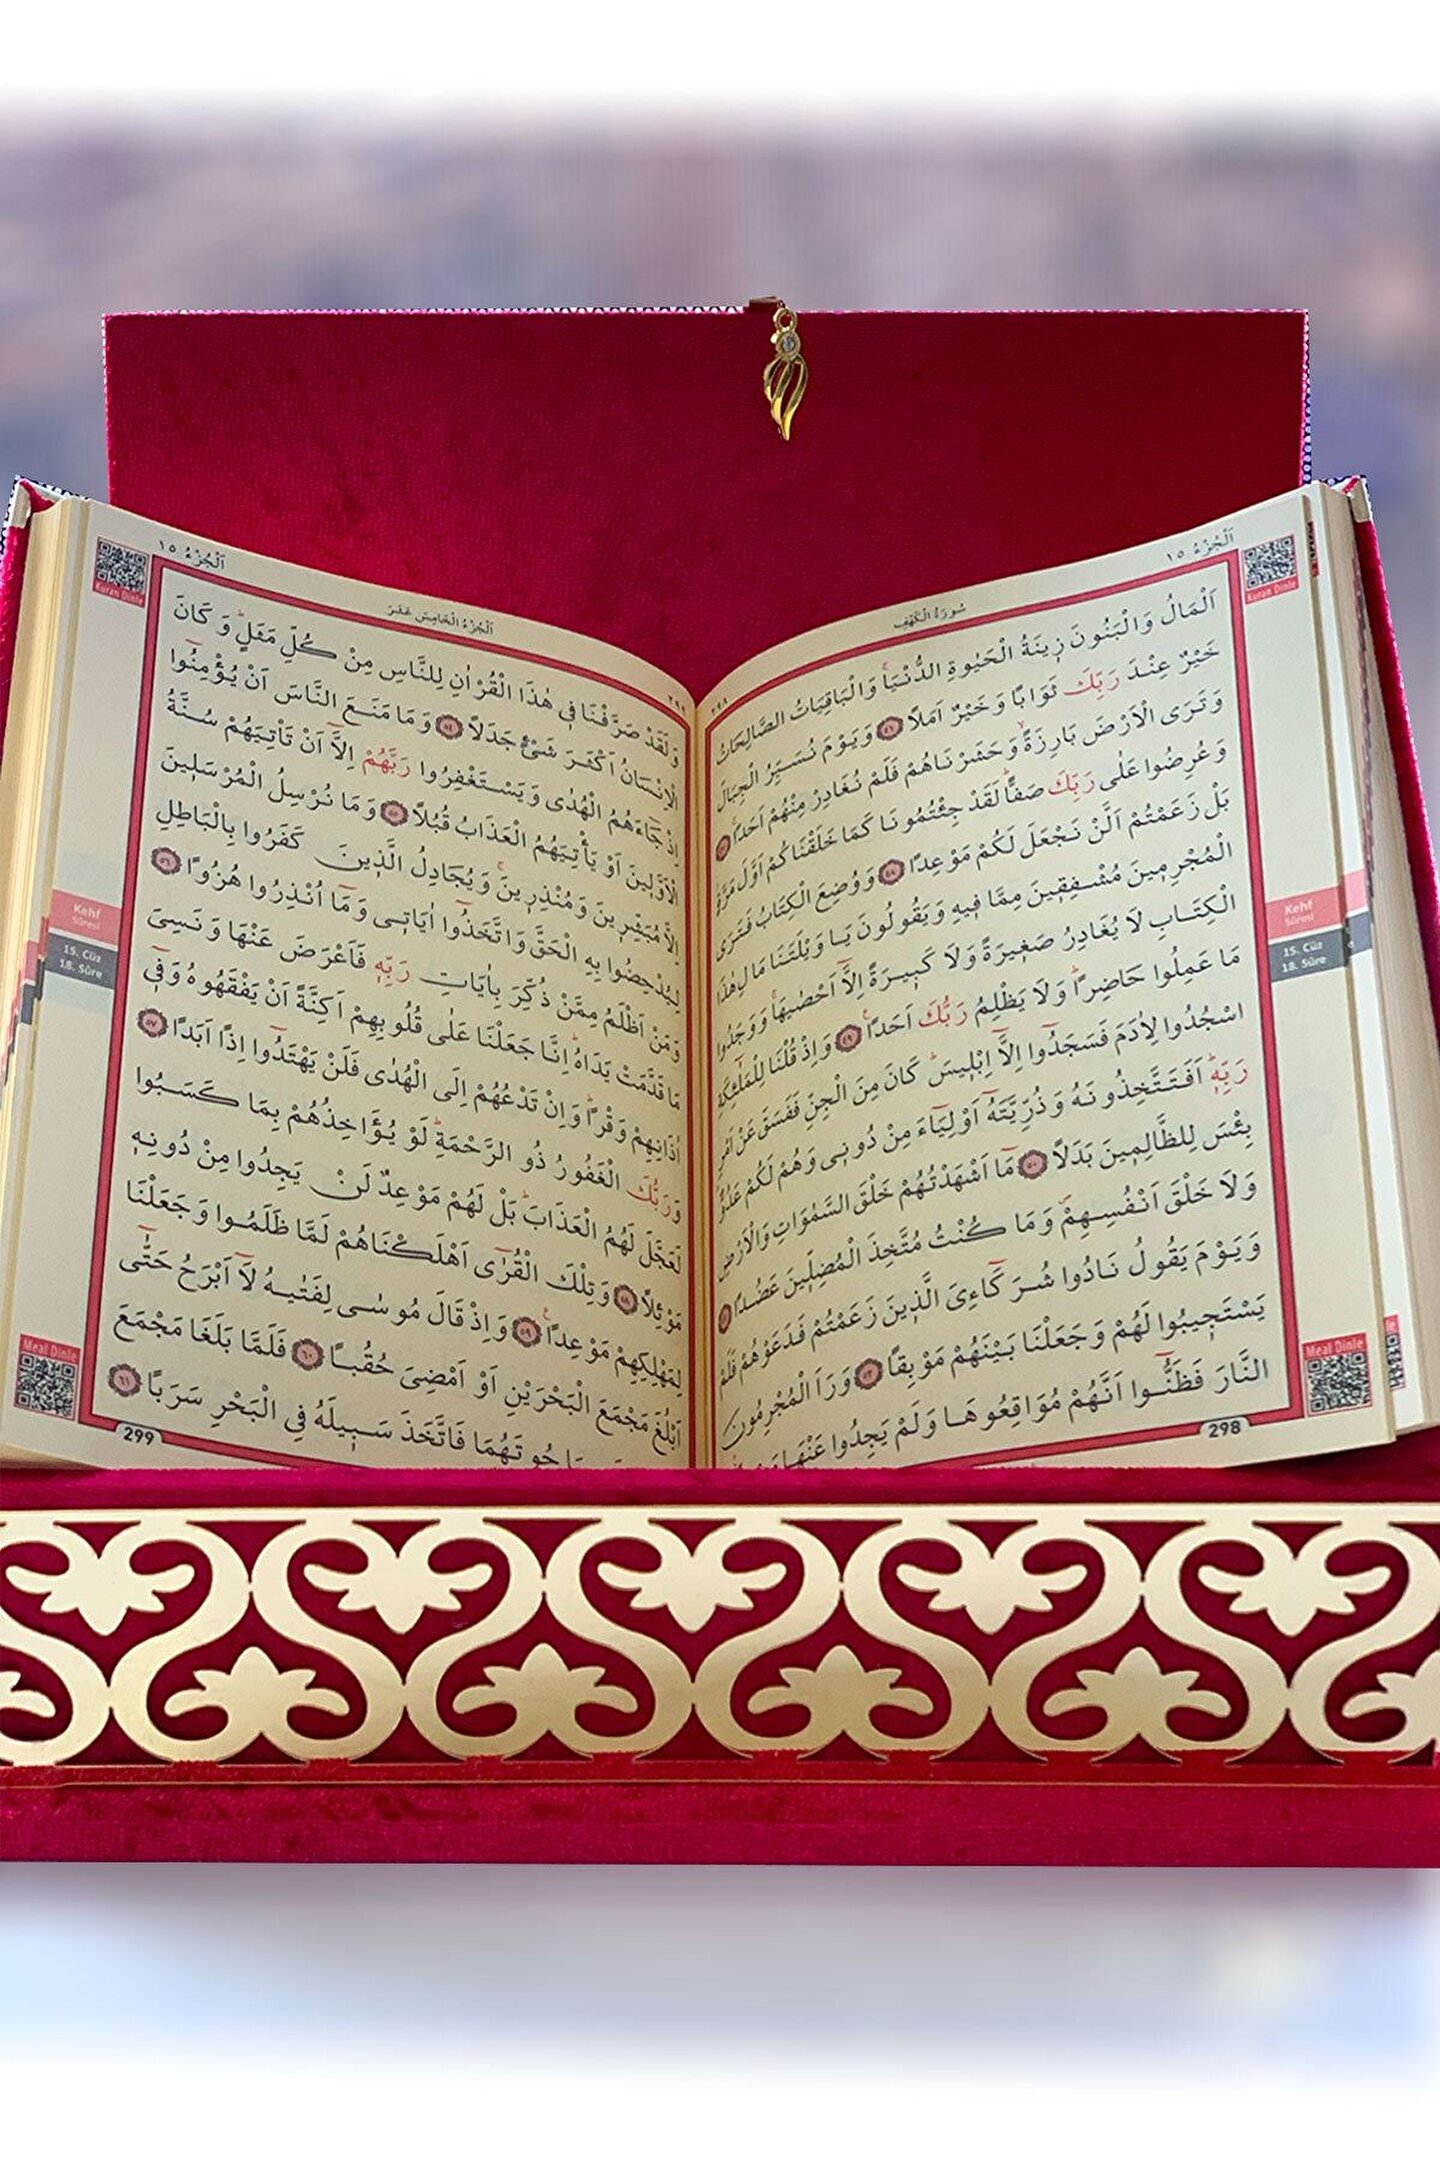 اَلْجُزْءُ ١٥
سُورَةُ الْكَهْفِ
٢٩٨
Kuran Dinle
اَلْمَالُ وَالْبَنُونَ زٖينَةُ الْحَيٰوةِ الدُّنْيَاۚ وَالْبَاقِيَاتُ الصَّالِحَاتُ
خَيْرٌ عِنْدَ رَبِّكَ ثَوَابًا وَخَيْرٌ اَمَلًا ٤٦ وَيَوْمَ نُسَيِّرُ الْجِبَالَ
وَتَرَى الْاَرْضَ بَارِزَةًۙ وَحَشَرْنَاهُمْ فَلَمْ نُغَادِرْ مِنْهُمْ اَحَدًاۚ ٤٧
وَعُرِضُوا عَلٰى رَبِّكَ صَفًّاۜ لَقَدْ جِئْتُمُونَا كَمَا خَلَقْنَاكُمْ اَوَّلَ مَرَّةٍ
بَلْ زَعَمْتُمْ اَلَّنْ نَجْعَلَ لَكُمْ مَوْعِدًا ٤٨ وَوُضِعَ الْكِتَابُ فَتَرَى
الْمُجْرِمٖينَ مُشْفِقٖينَ مِمَّا فٖيهِ وَيَقُولُونَ يَا وَيْلَتَنَا مَالِ هٰذَا
الْكِتَابِ لَا يُغَادِرُ صَغٖيرَةً وَلَا كَبٖيرَةً اِلَّٓا اَحْصٰيهَاۚ وَوَجَدُوا
مَا عَمِلُوا حَاضِرًاۜ وَلَا يَظْلِمُ رَبُّكَ اَحَدًاۚ ٤٩ وَاِذْ قُلْنَا لِلْمَلٰٓئِكَةِ
اسْجُدُوا لِاٰدَمَ فَسَجَدُٓوا اِلَّٓا اِبْلٖيسَۜ كَانَ مِنَ الْجِنِّ فَفَسَقَ عَنْ اَمْرِ
رَبِّهٖۜ اَفَتَتَّخِذُونَهُ وَذُرِّيَّتَهُٓ اَوْلِيَٓاءَ مِنْ دُونٖى وَهُمْ لَكُمْ عَدُوٌّ
بِئْسَ لِلظَّالِمٖينَ بَدَلًا ٥٠ مَٓا اَشْهَدْتُهُمْ خَلْقَ السَّمٰوَاتِ وَالْاَرْضِ
وَلَا خَلْقَ اَنْفُسِهِمْۖ وَمَا كُنْتُ مُتَّخِذَ الْمُضِلّٖينَ عَضُدًا ٥١
وَيَوْمَ يَقُولُ نَادُوا شُرَكَٓاءِىَ الَّذٖينَ زَعَمْتُمْ فَدَعَوْهُمْ فَلَمْ
يَسْتَجٖيبُوا لَهُمْ وَجَعَلْنَا بَيْنَهُمْ مَوْبِقًا ٥٢ وَرَاَ الْمُجْرِمُونَ
النَّارَ فَظَنُّٓوا اَنَّهُمْ مُوَاقِعُوهَا وَلَمْ يَجِدُوا عَنْهَا
Kehf
Sûresi
15. Cüz
18. Sûre
Meal Dinle
298
اَلْجُزْءُ ١٥
اَلْجُزْءُ الْخَامِسَ عَشَرَ
٢٩٩
Kuran Dinle
وَلَقَدْ صَرَّفْنَا فٖى هٰذَا الْقُرْاٰنِ لِلنَّاسِ مِنْ كُلِّ مَثَلٍۜ وَكَانَ
الْاِنْسَانُ اَكْثَرَ شَىْءٍ جَدَلًا ٥٤ وَمَا مَنَعَ النَّاسَ اَنْ يُؤْمِنُٓوا
اِذْ جَٓاءَهُمُ الْهُدٰى وَيَسْتَغْفِرُوا رَبَّهُمْ اِلَّٓا اَنْ تَأْتِيَهُمْ سُنَّةُ
الْاَوَّلٖينَ اَوْ يَأْتِيَهُمُ الْعَذَابُ قُبُلًا ٥٥ وَمَا نُرْسِلُ الْمُرْسَلٖينَ
اِلَّا مُبَشِّرٖينَ وَمُنْذِرٖينَۚ وَيُجَادِلُ الَّذٖينَ كَفَرُوا بِالْبَاطِلِ
لِيُدْحِضُوا بِهِ الْحَقَّ وَاتَّخَذُٓوا اٰيَاتٖى وَمَٓا اُنْذِرُوا هُزُوًا ٥٦
وَمَنْ اَظْلَمُ مِمَّنْ ذُكِّرَ بِاٰيَاتِ رَبِّهٖ فَاَعْرَضَ عَنْهَا وَنَسِىَ
مَا قَدَّمَتْ يَدَاهُۜ اِنَّا جَعَلْنَا عَلٰى قُلُوبِهِمْ اَكِنَّةً اَنْ يَفْقَهُوهُ وَفٖٓى
اٰذَانِهِمْ وَقْرًاۜ وَاِنْ تَدْعُهُمْ اِلَى الْهُدٰى فَلَنْ يَهْتَدُٓوا اِذًا اَبَدًا ٥٧
وَرَبُّكَ الْغَفُورُ ذُو الرَّحْمَةِۜ لَوْ يُؤَاخِذُهُمْ بِمَا كَسَبُوا
لَعَجَّلَ لَهُمُ الْعَذَابَۜ بَلْ لَهُمْ مَوْعِدٌ لَنْ يَجِدُوا مِنْ دُونِهٖ
مَوْئِلًا ٥٨ وَتِلْكَ الْقُرٰٓى اَهْلَكْنَاهُمْ لَمَّا ظَلَمُوا وَجَعَلْنَا
لِمَهْلِكِهِمْ مَوْعِدًاۚ ٥٩ وَاِذْ قَالَ مُوسٰى لِفَتٰيهُ لَٓا اَبْرَحُ حَتّٰٓى
اَبْلُغَ مَجْمَعَ الْبَحْرَيْنِ اَوْ اَمْضِىَ حُقُبًا ٦٠ فَلَمَّا بَلَغَا مَجْمَعَ
فَاتَّخَذَ سَبٖيلَهُ فِى الْبَحْرِ سَرَبًا ٦١
Kehf
Sûresi
15. Cüz
18. Sûre
Meal Dinle
299